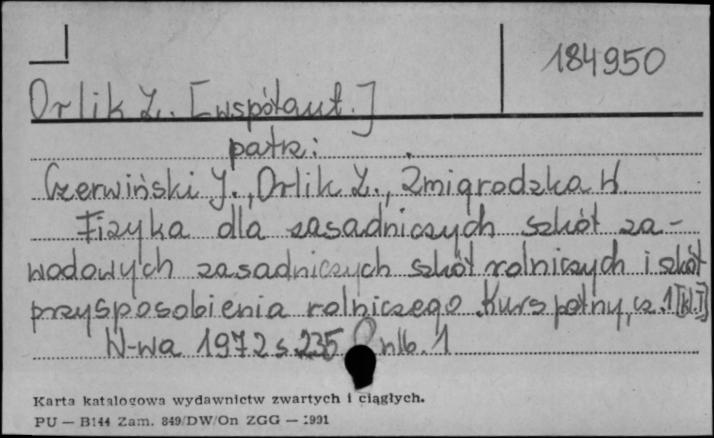 184950
Orlik Z. [współaut.]
patrz:
Czerwiński J., Orlik Z., Żmigrodzka W
Fizyka dla zasadniczych szkół za-
wodowych zasadniczych szkół rolniczych i szkół
przysposobienia rolniczego. Kurs pełny, cz. 1 [kl. I]
W-wa 1972 s. 235 nlb. 1
Karta katalogowa wydawnictw zwartych i ciągłych.
PU — B144 Zam. 849/DW/On ZGG — 1991